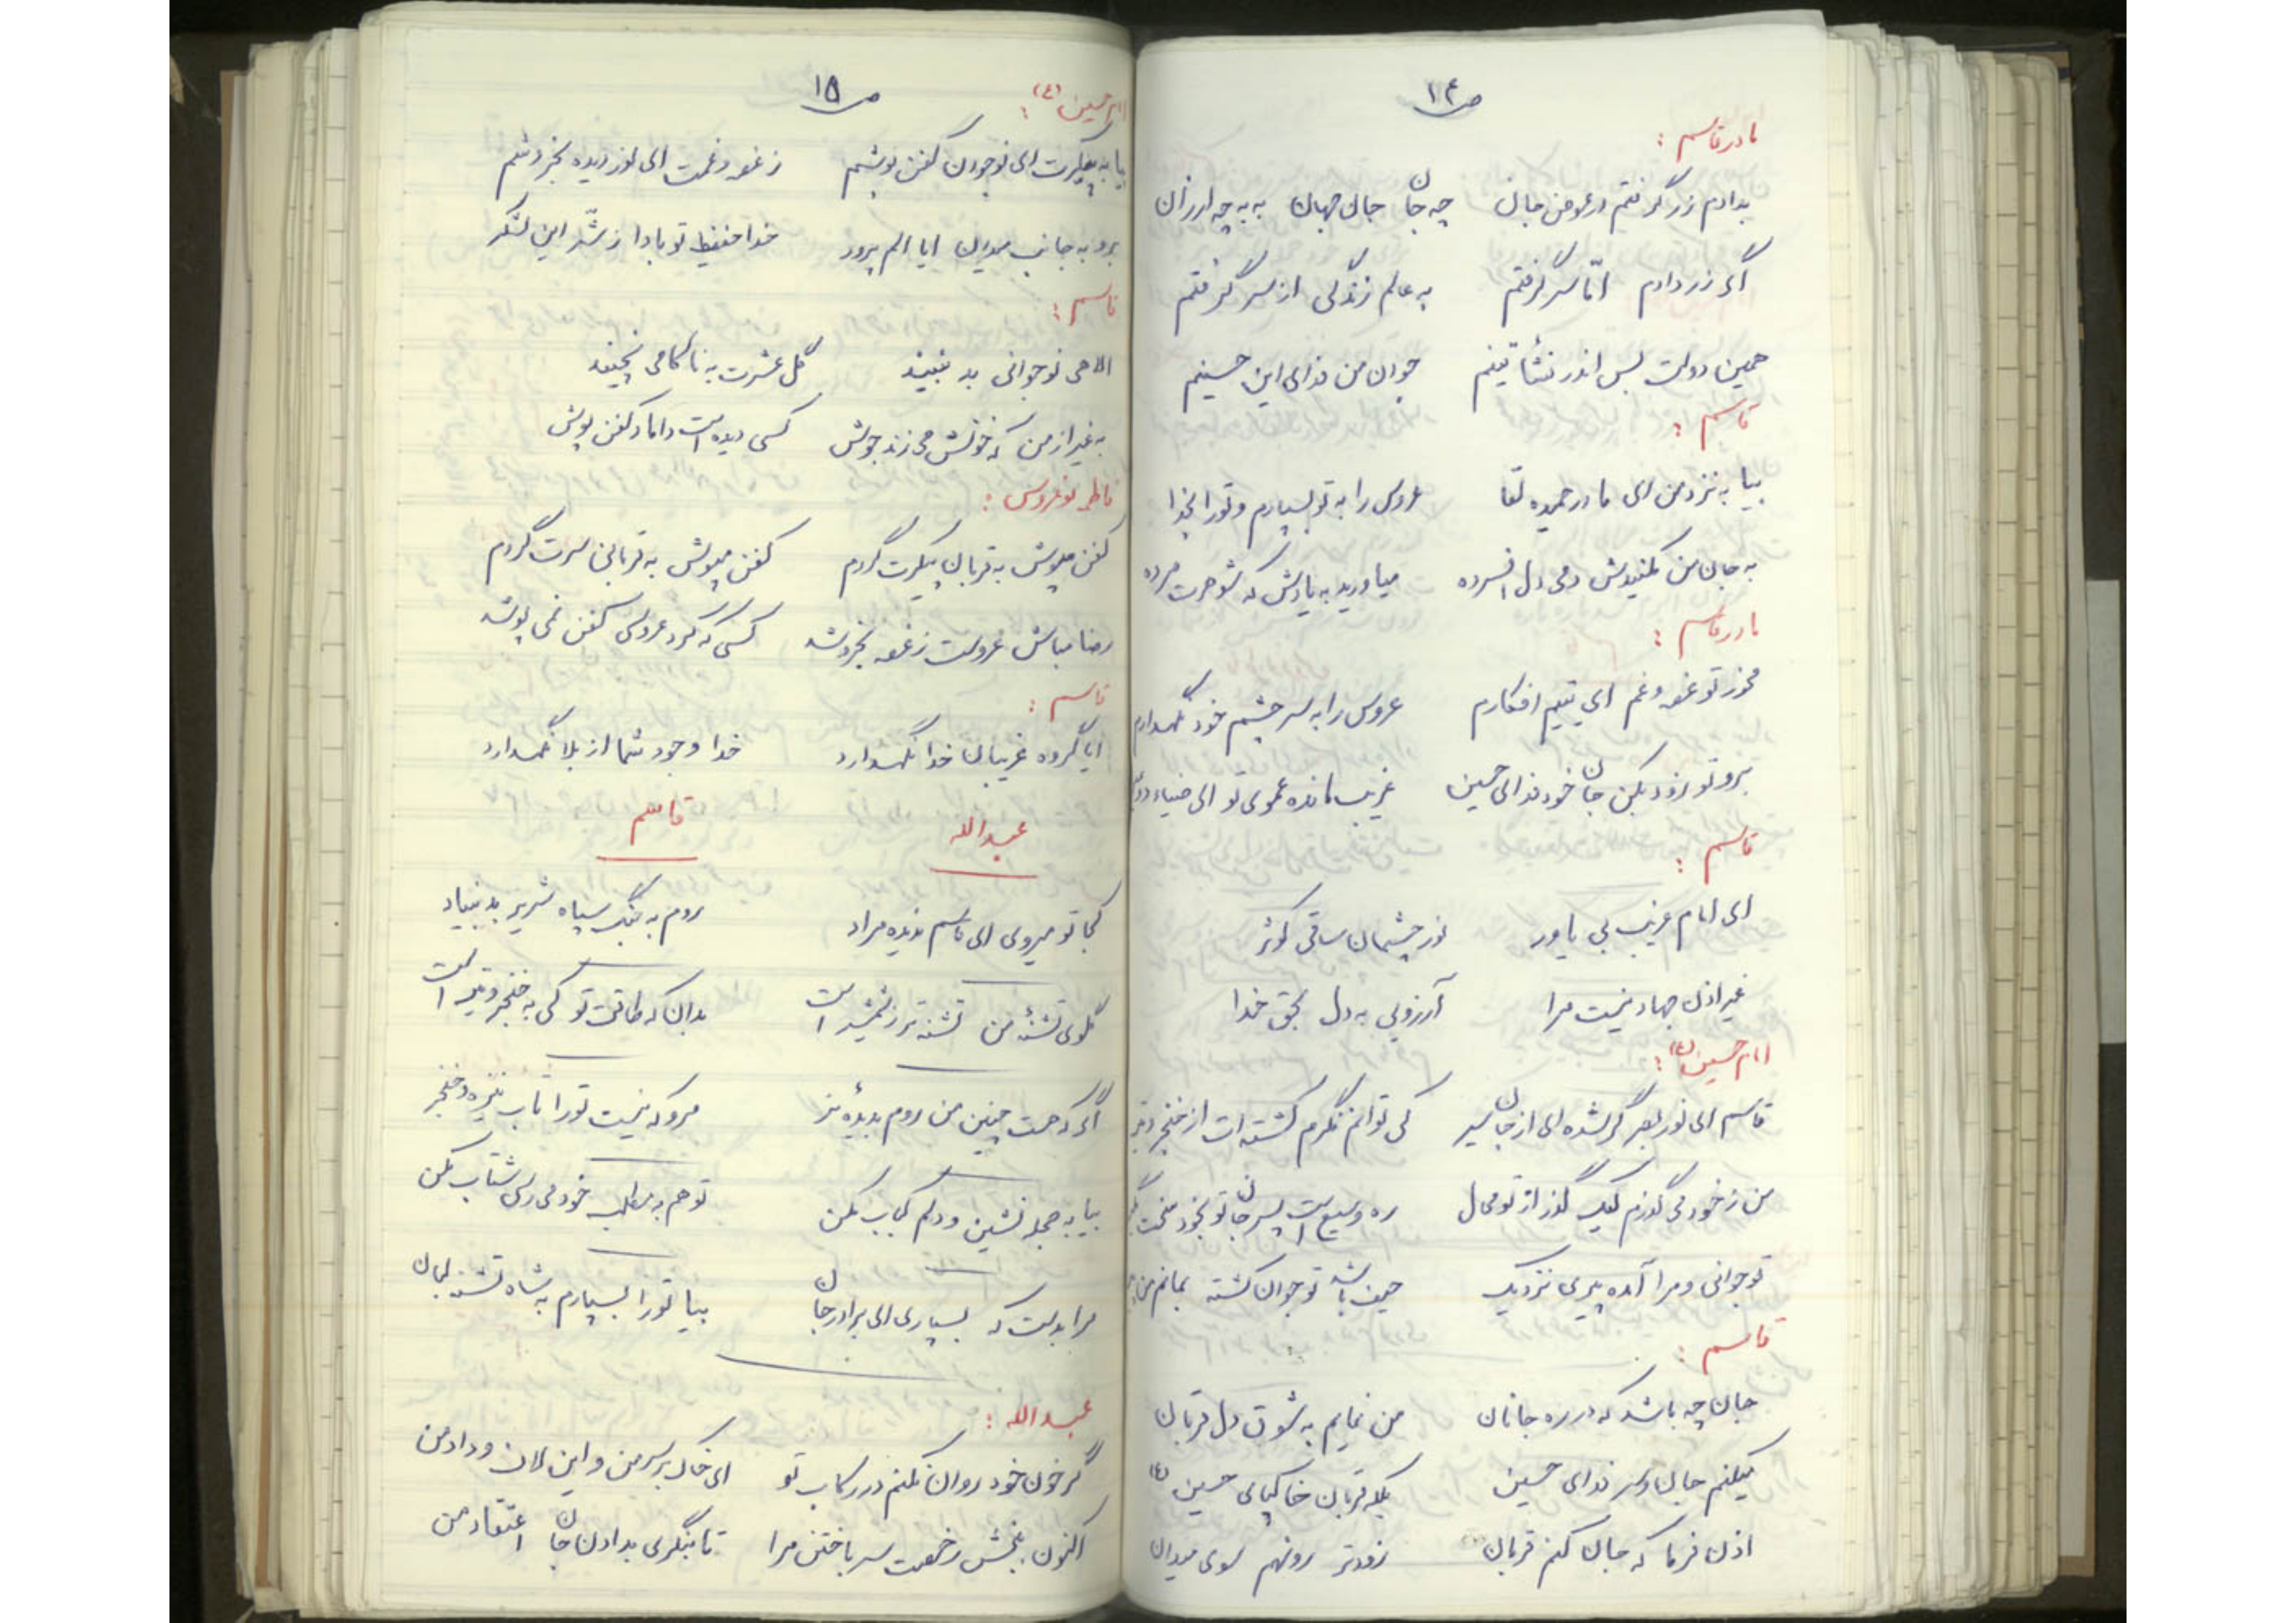 ص۱۴
مادر قاسم :
بدادم زر گرفتم در عوض جان چه جان جان جهان به به چه ارزان
اگر زر دادم امّا سر گرفتم به عالم زندگی از سر گرفتم
همین دولت بس اندر نشأتینم جوان من فدای این حسینم
قاسم :
بیا به نزد من ای مادر حمیده لقا عروس را به تو بسپارم و تو را بخدا
به جان من نکنیدش دمی دل افسرده میاورید به یادش که شوهرت مرده
مادر قاسم :
مخور تو غصه و غم ای یتیم افکارم عروس را به سر چشم خود نگهدارم
برو تو زود بکن جان خود فدای حسین غریب مانده عموی تو ای ضیاء دو
قاسم :
ای امام غریب بی یاور نور چشمان ساقی کوثر
غیر اذن جهاد نیست مرا آرزویی به دل بحق خدا
امام حسین (ع) :
قاسم ای نور بصر گر شده ای از جان سیر کی توانم نگرم کشته ات از خنجر و تیر
من ز خود می گذرم لیک گذر از تو محال ره وسیع است پسر جان تو بخود سخت
نوجوانی و مرا آمده پیری نزدیک حیف باشد تو جوان کشته بمانم من
قاسم :
جان چه باشد که در ره جانان من نمایم به شوق دل قربان
میکنم جان و سر فدای حسین بلکه قربان خاکپای حسین (ع)
اذن فرما که جان کنم قربان زودتر رو نهم سوی میدان
ص۱۵
امام حسین (ع) :
بیا به پیکرت ای نوجوان کفن پوشم ز غصه و غمت ای نور دیده بخروشم
برو به جانب میدان ایا الم پرور خدا حفیظ تو بادا ز شّر این لشکر
قاسم :
الاهی نوجوانی بد نبیند گل عشرت به ناکامی نچیند
به غیر از من که خونش می زند جوش کسی دیده است داماد کفن پوش
فاطمه نوعروس :
کفن مپوش به قربان پیکرت گردم کفن مپوش به قربانی سرت گردم
رضا مباش عروست ز غصه بخروشد کسی که کرد عروسی کفن نمی پوشد
قاسم :
ایا گروه غریبان خدا نگهدارد خدا وجود شما از بلا نگهدارد
عبدالله قاسم
کجا تو میروی ای قاسم ندیده مراد روم به جنگ سپاه شریر بد بنیاد
گلوی تشنۀ من تشنه تر ز شمشیر است بدان که طاقت تو کی به خنجر و تیر است
اگر که هست چنین من روم بدیدۀ تر مرو که نیست تو را تاب نیزه و خنجر
بیا به حجله نشین و دلم کباب مکن تو هم به مطلب خود می رسی شتاب مکن
مرا بدست که بسپاری ای برادر جان بیا تو را بسپارم به شاه تشنه لبان
عبدالله :
گر خون خود روان نکنم در رکاب تو ای خاک بر سر من و این لاف و داد من
اکنون ببخش رخصت سر باختن مرا تا بنگری بدادن جان اعتقاد من